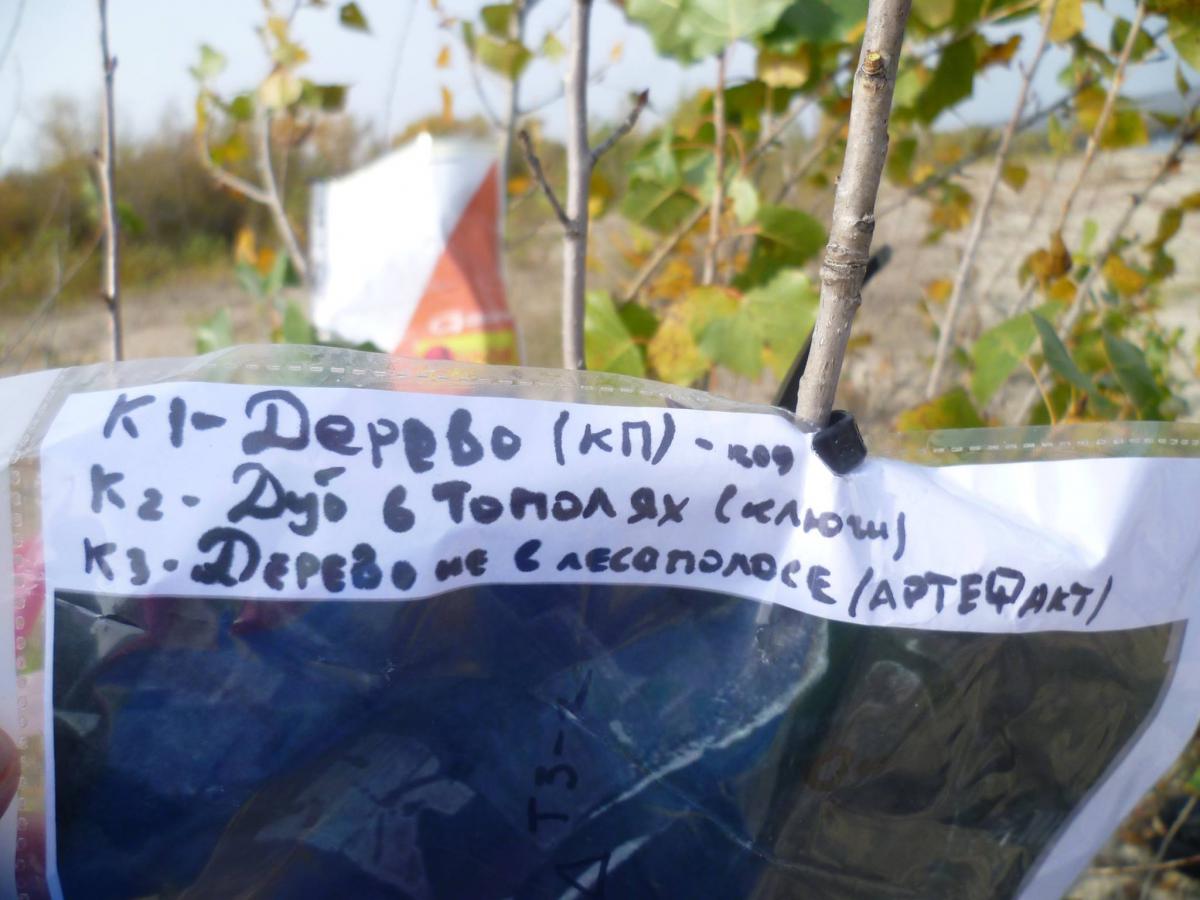 К1- Дерево (КП) - код
К2- Дуб в Тополях (ключи)
К3- Дерево не в лесополосе (АРТЕФАКТ)
Т3-